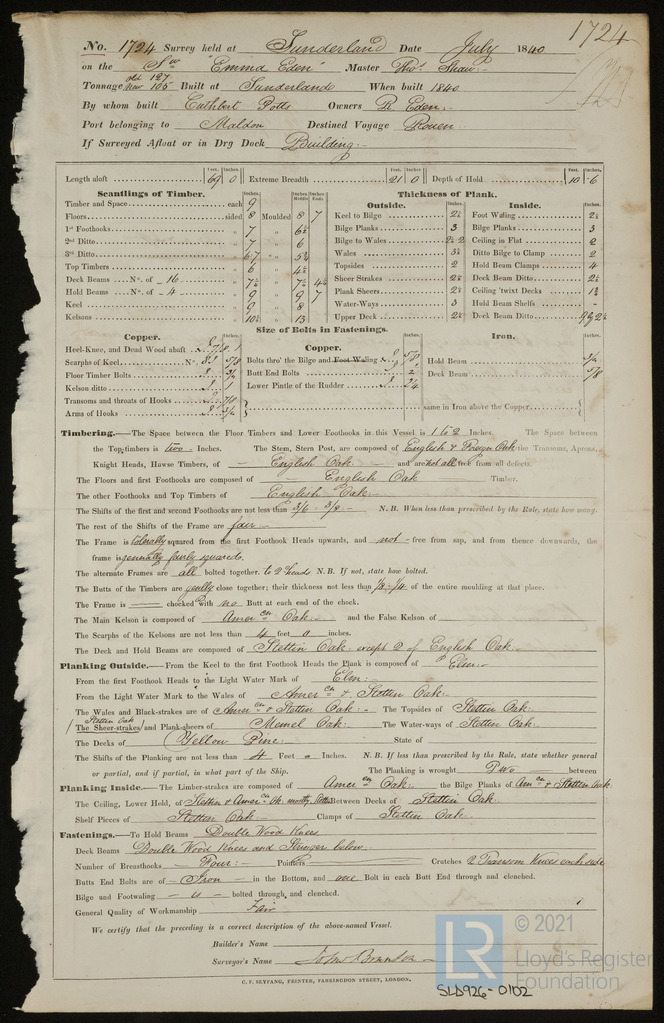 1724
No. 1724 Survey held at Sunderland Date July 1840
on the Sr "Emma Eden" Master Thos. Shaw
Tonnage old 127 new 105 Built at Sunderland When built 1840
By whom built Cuthbert Potts Owners R. Eden
Port belonging to Maldon Destined Voyage Rouen
If Surveyed Afloat or in Dry Dock Building
Feet. Inches. Feet. Inches. Feet. Inches.
Length aloft 69 0 Extreme Breadth 21 0 Depth of Hold 10 6
Scantlings of Timber.
Inches. Inches Middle Inches Ends
Timber and Space each 9
Floors sided 8 Moulded 8 7
1st Foothooks " 7 " 6½
2nd Ditto " 7 " 6
3rd Ditto " 6 7 " 5½
Top Timbers " 6 " 4½
Deck Beams No. of 16 " 7½ " 7½ 4½
Hold Beams No. of 4 " 9 " 9 7
Keel " 9 " 8
Kelsons " 10½ " 13
Thickness of Plank.
Outside. Inches. Inside. Inches.
Keel to Bilge 2½ Foot Waling 2½
Bilge Planks 3 Bilge Planks 3
Bilge to Wales 2½ 2 Ceiling in Flat 2
Wales 3½ Ditto Bilge to Clamp 2
Topsides 2 Hold Beam Clamps 4
Sheer Strakes 2½ Deck Beam Ditto 2½
Plank Sheers 2½ Ceiling 'twixt Decks 1¾
Water-Ways 3 Hold Beam Shelfs -
Upper Deck 2½ Deck Beam Ditto 9 by 2½
Size of Bolts in Fastenings.
Copper. Inches. Copper. Inches. Iron. Inches.
Heel-Knee, and Dead Wood abaft
Scarphs of Keel No.
Floor Timber Bolts
Kelson ditto 1
Transoms and throats of Hooks
Arms of Hooks
Bolts thro' the Bilge and Foot Waling
Butt End Bolts
Lower Pintle of the Rudder 2¼
Hold Beam
Deck Beam 5/8
same in Iron above the Copper
Timbering.—The Space between the Floor Timbers and Lower Foothooks in this Vessel is 1 to 2 Inches. The Space between
the Top-timbers is two Inches. The Stem, Stern Post, are composed of English & Foreign Oak the Transoms, Aprons,
Knight Heads, Hawse Timbers, of English Oak and are not all free from all defects.
The Floors and first Foothooks are composed of English Oak Timber.
The other Foothooks and Top Timbers of English Oak
The Shifts of the first and second Foothooks are not less than 3/6 - 3/8 N.B. When less than prescribed by the Rule, state how many.
The rest of the Shifts of the Frame are fair
The Frame is tolerally squared from the first Foothook Heads upwards, and not free from sap, and from thence downwards, the
frame is generally fairly squared.
The alternate Frames are all bolted together. to 2d heads N.B. If not, state how bolted.
The Butts of the Timbers are genlly close together; their thickness not less than 1/3 - 1/4 of the entire moulding at that place.
The Frame is — chocked with no Butt at each end of the chock.
The Main Kelson is composed of Amercn Oak and the False Kelson of
The Scarphs of the Kelsons are not less than 4 feet 0 inches.
The Deck and Hold Beams are composed of Stettin Oak except 2 of English Oak
Planking Outside.—From the Keel to the first Foothook Heads the Plank is composed of Elm
From the first Foothook Heads to the Light Water Mark of Elm
From the Light Water Mark to the Wales of Amercn & Stettin Oak
The Wales and Black-strakes are of Amercn & Stettin Oak The Topsides of Stettin Oak
Stettin Oak
The Sheer-strakes and Plank-sheers of Memel Oak The Water-ways of Stettin Oak
The Decks of Yellow Pine State of
The Shifts of the Planking are not less than 4 Feet Inches. N.B. If less than prescribed by the Rule, state whether general
or partial, and if partial, in what part of the Ship. The Planking is wrought Two between
Planking Inside.—The Limber-strakes are composed of Amercn Oak the Bilge Planks of Amcn & Stettin Oak
The Ceiling, Lower Hold, of Stettin & Amercn Oak mostly Between Decks of Stettin Oak
Shelf Pieces of Stettin Oak Clamps of Stettin Oak
Fastenings.—To Hold Beams Double Wood Knees
Deck Beams Double Wood Knees and Stringer below
Number of Breasthooks Four Pointers Crutches 2 Transom Knees each side
Butts End Bolts are of Iron in the Bottom, and one Bolt in each Butt End through and clenched.
Bilge and Footwaling bolted through and clenched.
General Quality of Workmanship Fair
We certify that the preceding is a correct description of the above-named Vessel.
Builder's Name
Surveyor's Name John Brunton
C. F. SEYFANG, PRINTER, FARRINGDON STREET, LONDON.
SLD926-0102
LR
© 2021
Lloyd's Register
Foundation